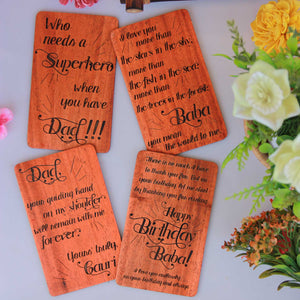 Who
needs a
Superhero
when
you have
Dad!!!
I love you
more than
the stars in the sky,
more than
the fish in the sea;
more than
the trees in the forest;
Baba
you mean
the world to me.
Dad,
your guiding hand
on my shoulder
will remain with me
forever!
Yours truly,
Gauri
There is so much I have
to thank you for. But on
your birthday, let me start
by thanking you for
Happy
Birthday
Baba!
I love you endlessly
on your birthday and always.